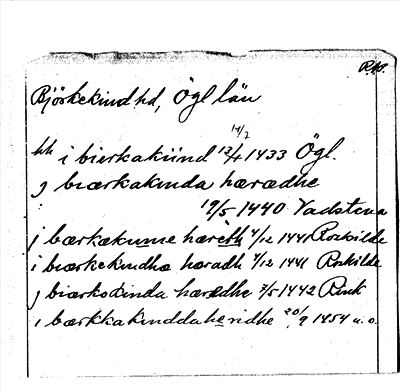 RAp.
Björkekind hd, Ögl län
14/7
hh i bierkakünd 12/4 1433 Ögl.
j biærkakinda hærædhe
19/5 1440 Vadstena
j bærkækunne hæreth 4/12 1441 Roskilde
i biærkekindhæ hæradh 4/12 1441 Roskilde
j biærkokinda hærædhe 7/5 1442
i bærkkakindda heridhe 20/9 1454 u.o.